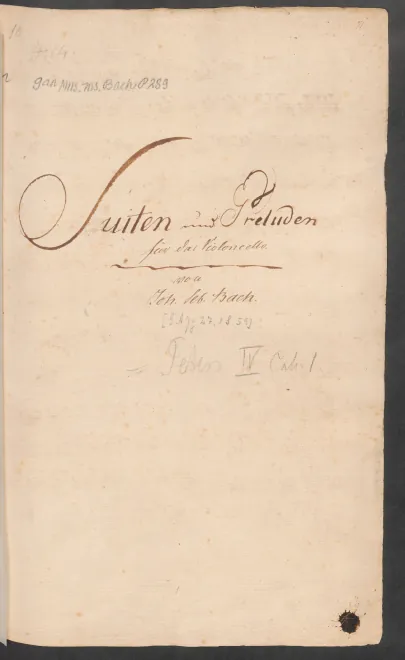 18
aus Mus. ms. Bach P 289
Suiten und Preluden
für das Violoncello
von
Joh. Seb. Bach.
= Peters IV Cah. 1